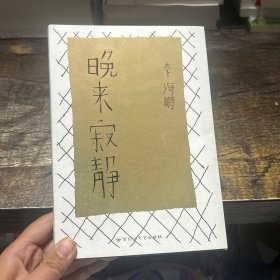 晚来寂静
李海鹏